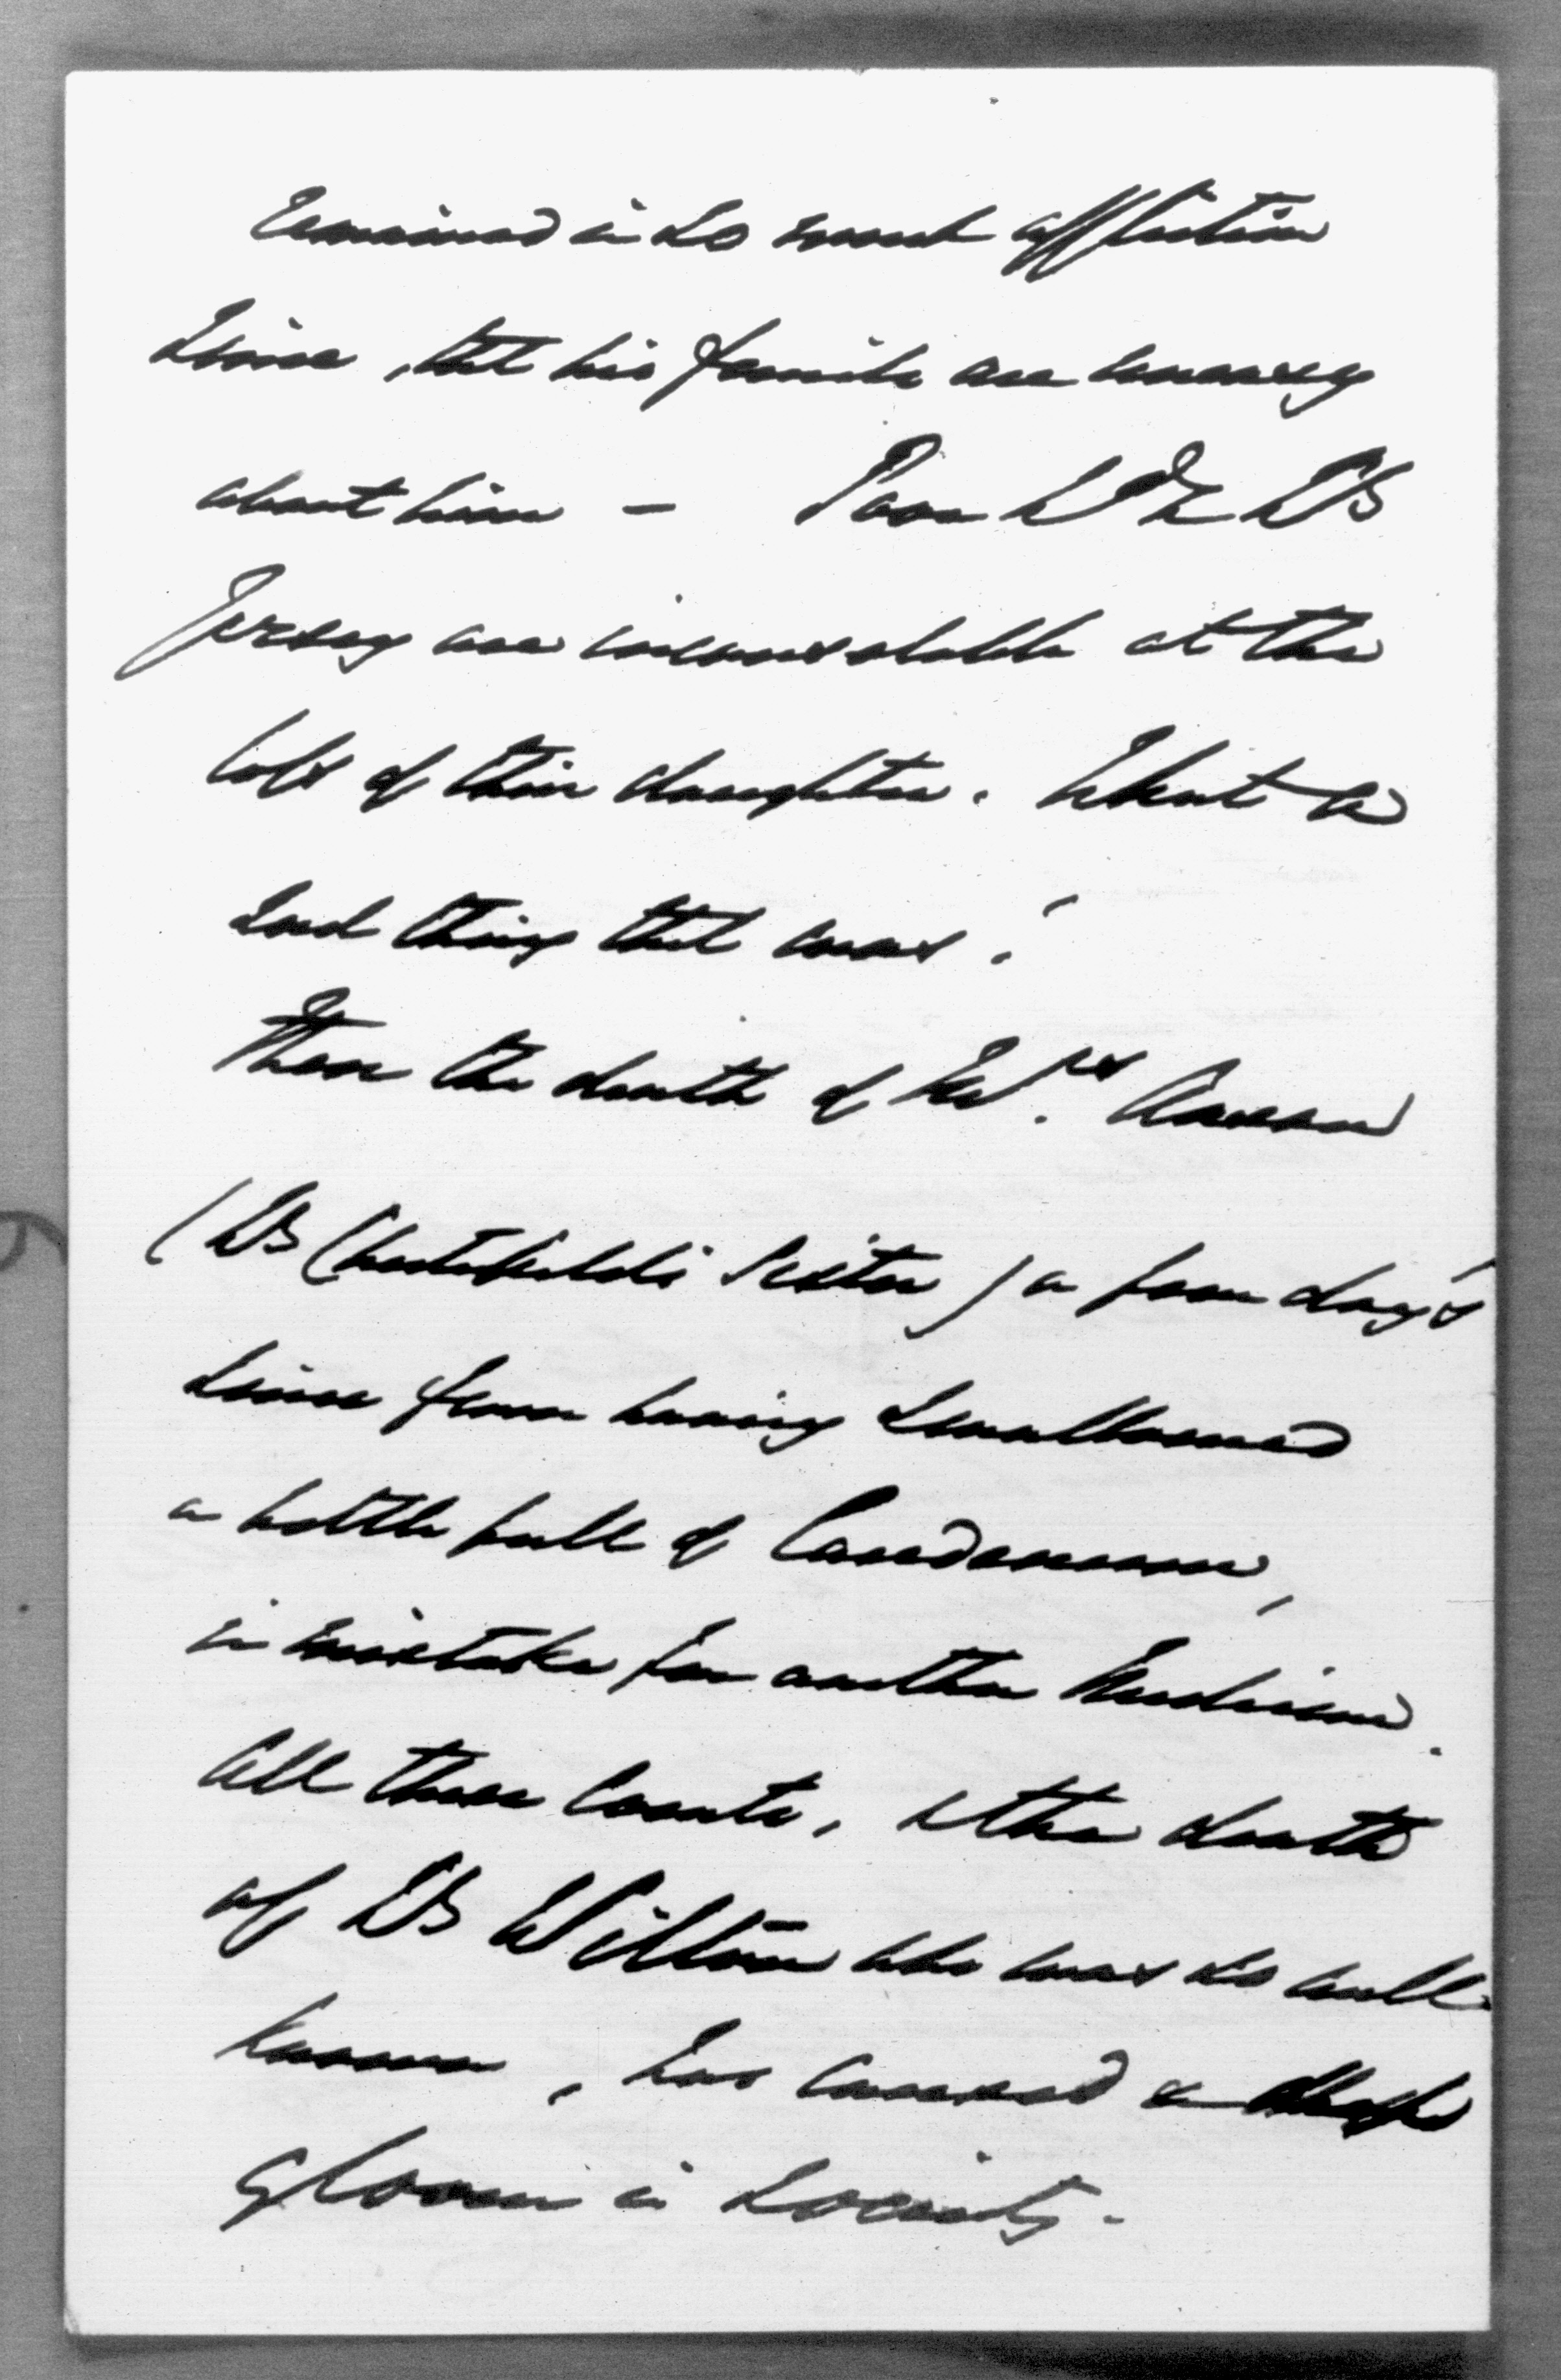 remained in so much affliction
since, that his family are uneasy
about him – Poor Ld & Ly
Jersey are inconsolable at the
loss of their daughter. What a
sad thing that was!
Then the death of Mrs. Anson
(Ly Chesterfield's Sister) a few day's
since from having swallowed
a bottle full of Laudanum,
in mistake for another Medicine.
All these events, & the death
of Ly Wilton who was so well
known, has caused a deep
gloom in Society.